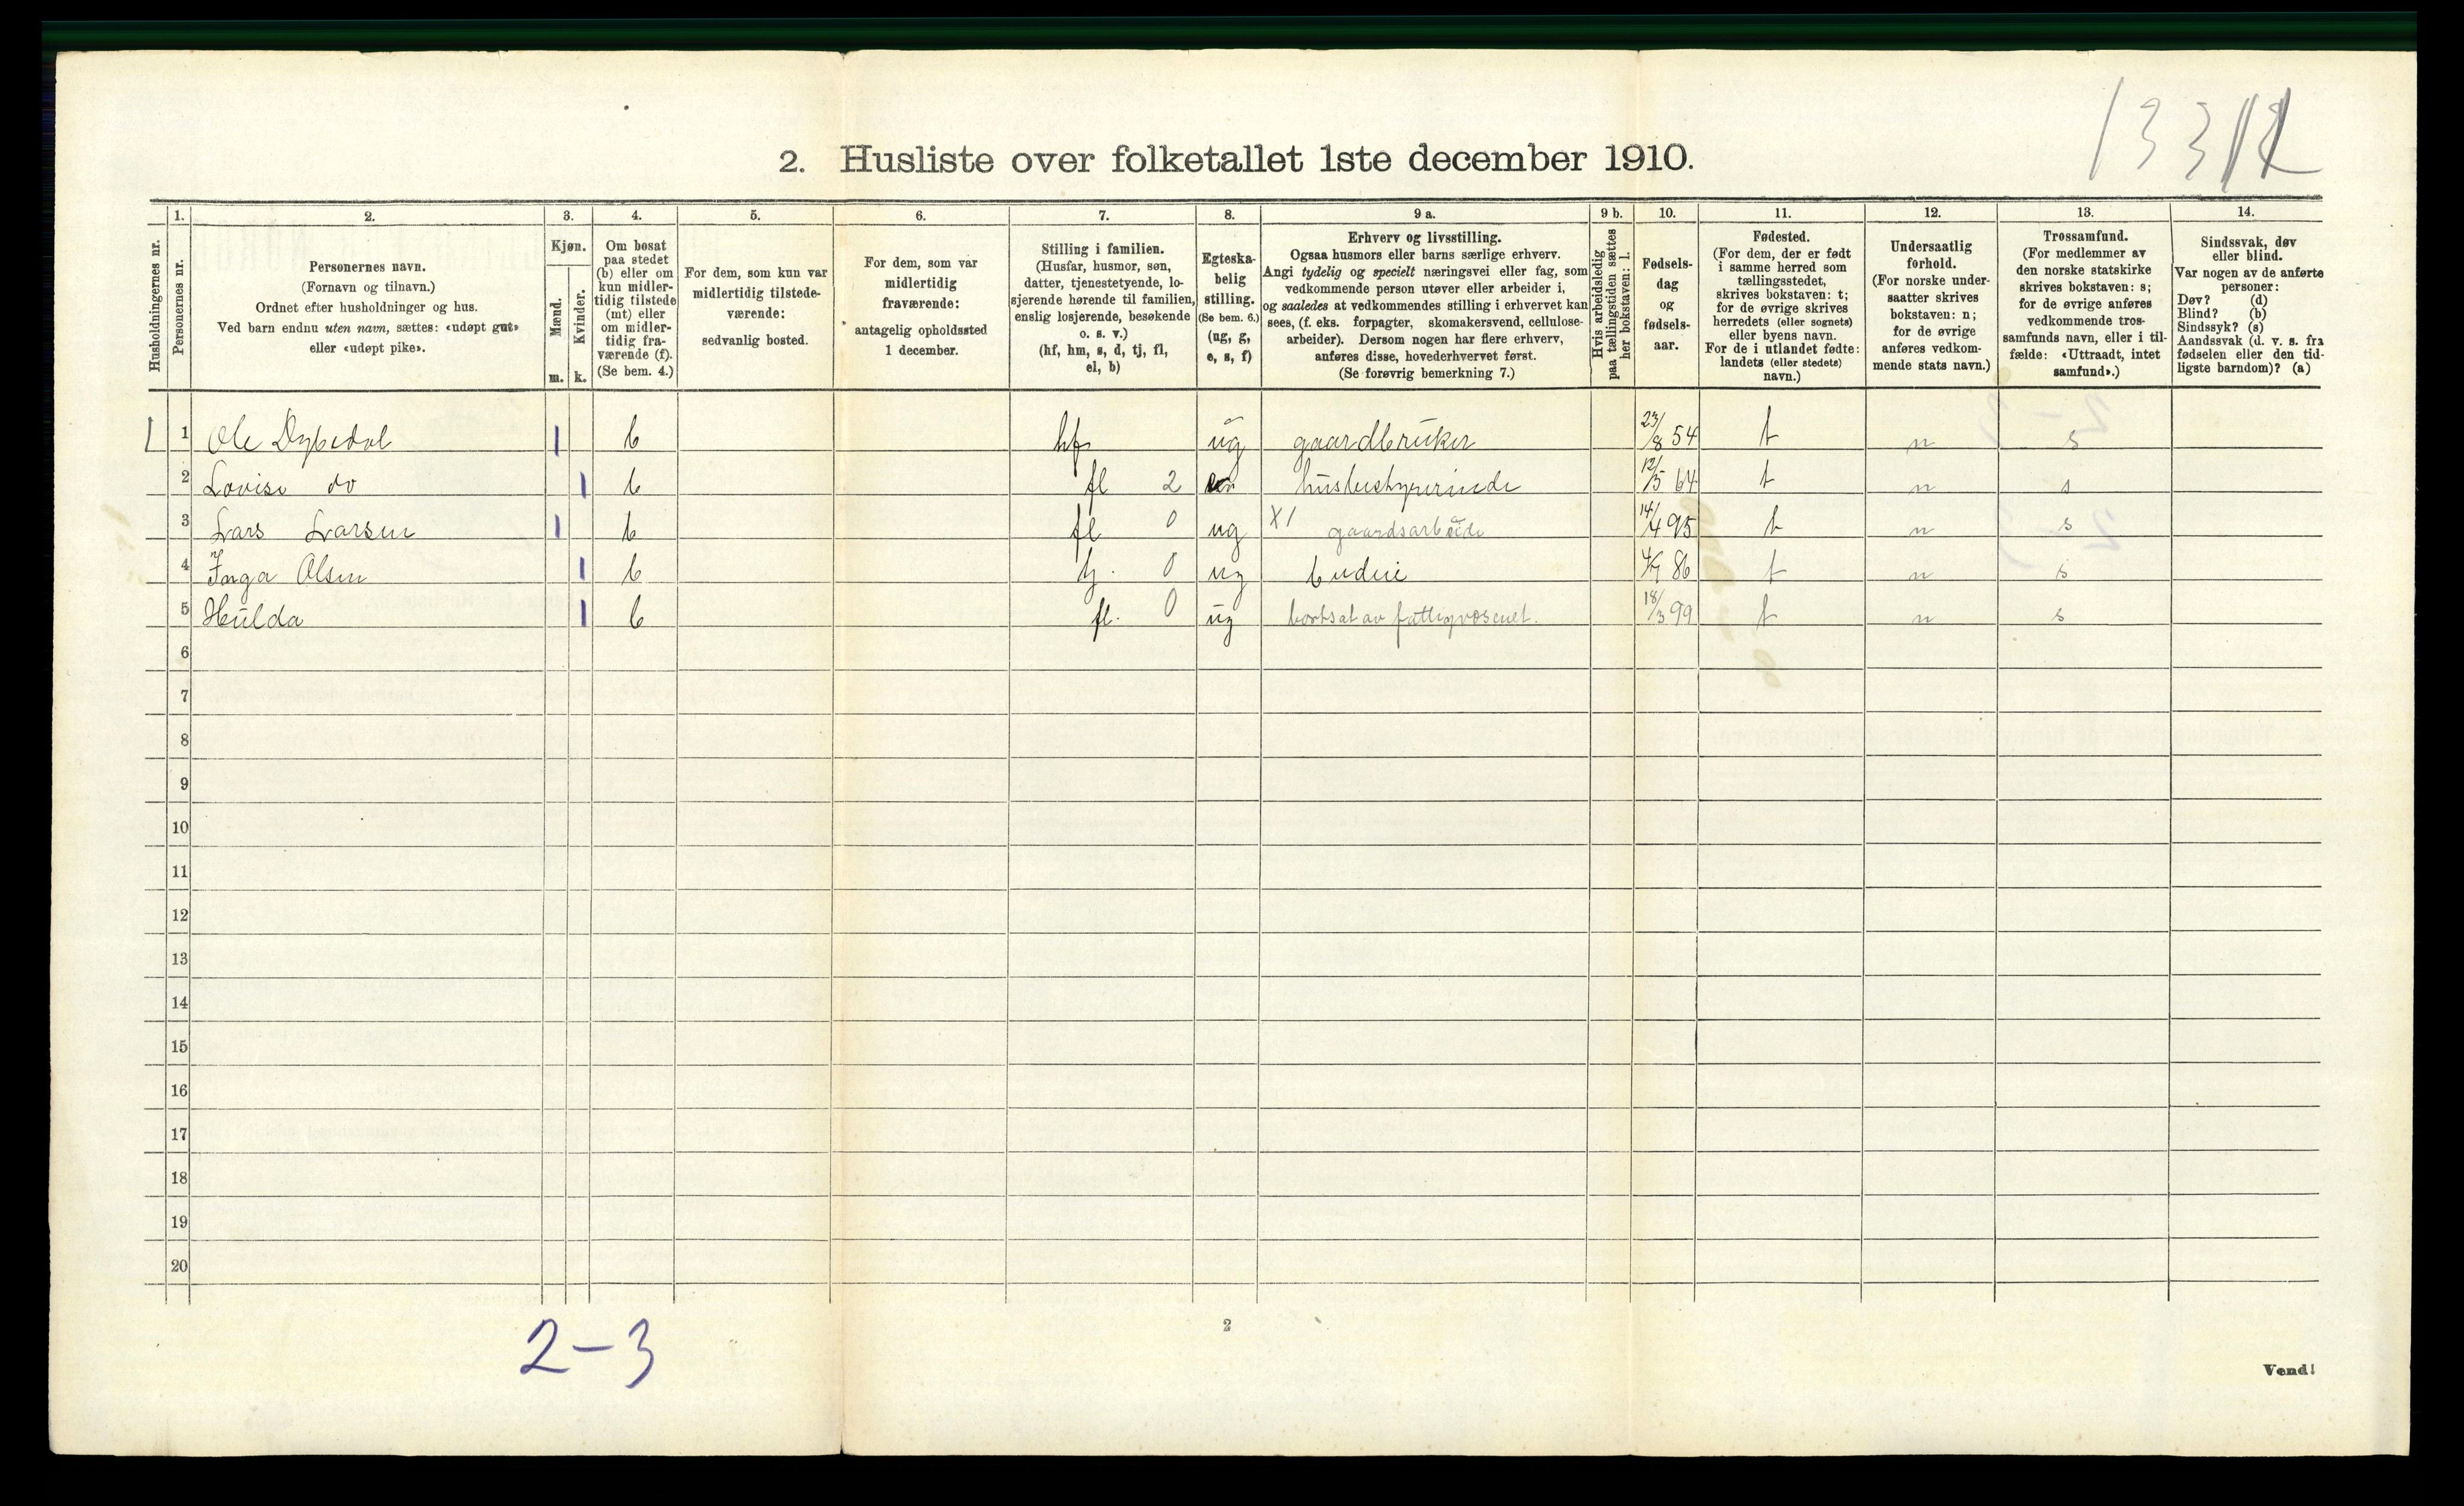 2. Husliste over folketallet 1ste december 1910.
Husholdningernes nr.
1. Personernes nr.
2. Personernes navn.
(Fornavn og tilnavn.)
Ordnet efter husholdninger og hus.
Ved barn endnu uten navn, sættes: «udøpt gut»
eller «udøpt pike».
3. Kjøn.
Mænd. m.
Kvinder. k.
4. Om bosat
paa stedet
(b) eller om
kun midler-
tidig tilstede
(mt) eller
om midler-
tidig fra-
værende (f).
(Se bem. 4.)
5. For dem, som kun var
midlertidig tilstede-
værende:
sedvanlig bosted.
6. For dem, som var
midlertidig
fraværende:
antagelig opholdssted
1 december.
7. Stilling i familien.
(Husfar, husmor, søn,
datter, tjenestetyende, lo-
sjerende hørende til familien,
enslig losjerende, besøkende
o. s. v.)
(hf, hm, s, d, tj, fl,
el, b)
8. Egteska-
belig
stilling.
(Se bem. 6.)
(ug, g,
e, s, f)
9 a. Erhverv og livsstilling.
Ogsaa husmors eller barns særlige erhverv.
Angi tydelig og specielt næringsvei eller fag, som
vedkommende person utøver eller arbeider i,
og saaledes at vedkommendes stilling i erhvervet kan
sees, (f. eks. forpagter, skomakersvend, cellulose-
arbeider). Dersom nogen har flere erhverv,
anføres disse, hovederhvervet først.
(Se forøvrig bemerkning 7.)
9 b. Hvis arbeidsledig
paa tællingstiden sættes
her bokstaven: l.
10. Fødsels-
dag
og
fødsels-
aar.
11. Fødested.
(For dem, der er født
i samme herred som
tællingsstedet,
skrives bokstaven: t;
for de øvrige skrives
herredets (eller sognets)
eller byens navn.
For de i utlandet fødte:
landets (eller stedets)
navn.)
12. Undersaatlig
forhold.
(For norske under-
saatter skrives
bokstaven: n;
for de øvrige
anføres vedkom-
mende stats navn.)
13. Trossamfund.
(For medlemmer av
den norske statskirke
skrives bokstaven: s;
for de øvrige anføres
vedkommende tros-
samfunds navn, eller i til-
fælde: «Uttraadt, intet
samfund».)
14. Sindssvak, døv
eller blind.
Var nogen av de anførte
personer:
Døv? (d)
Blind? (b)
Sindssyk? (s)
Aandssvak (d. v. s. fra
fødselen eller den tid-
ligste barndom)? (a)
1 1 Ole Dybedal 1 b hf ug gaardbruker 23/8 54 t n s
2 Lovise do 1 b fl 2 husbestyrerinde 12/5 64 t n s
3 Lars Larsen 1 b fl 0 ug X1 gaardsarbeide 14/4 95 t n s
4 Inga Olsen 1 b tj. 0 ug budeie 86 t n s
5 Hulda 1 b fl. 0 ug bortsat av fattigvæsenet. 18/3 99 t n s
6
7
8
9
10
11
12
13
14
15
16
17
18
19
20
2-3
2
Vend!